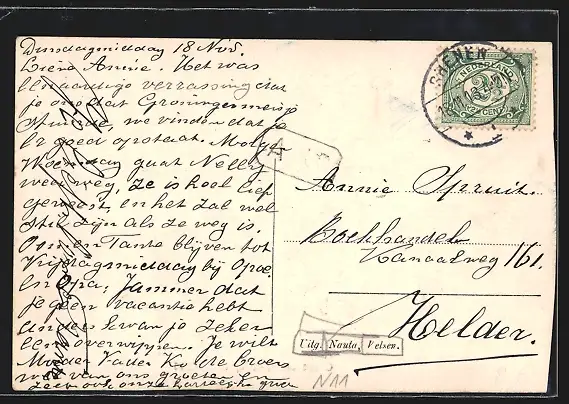 Dinsdagmiddag 18 Nov.
Lieve Annie. Het was
een aardige verrassing dat
je ons dat Groningermeisje
stuurde, we vinden dat je
er goed opstaat. Morgen
Woensdag gaat Nelly
weer weg, ze is heel lief
geweest, en het zal wel
stil zijn als ze weg is.
Oom en Tante blijven tot
Vrijdagmiddag bij Opoe
en Opa; Jammer dat
je geen vacantie hebt
anders kwam je zeker
eens overwippen. Je wilt
Moeder Vader Ko de broers
wel van ons groeten en
zeer ook onze hartelijke groeten
RHENEN
NEDERLAND
2½
CENT
A
Annie Spruit.
Boekhandel
Kanaalweg 161.
Helder.
Uitg. Nauta, Velsen.
N11